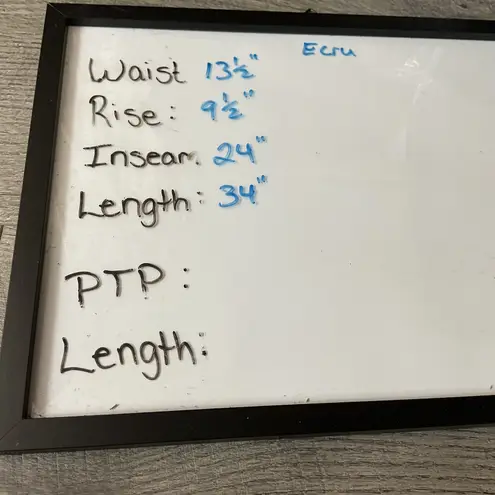 Ecru
Waist 13½"
Rise: 9½"
Inseam. 24"
Length: 34"
PTP:
Length: